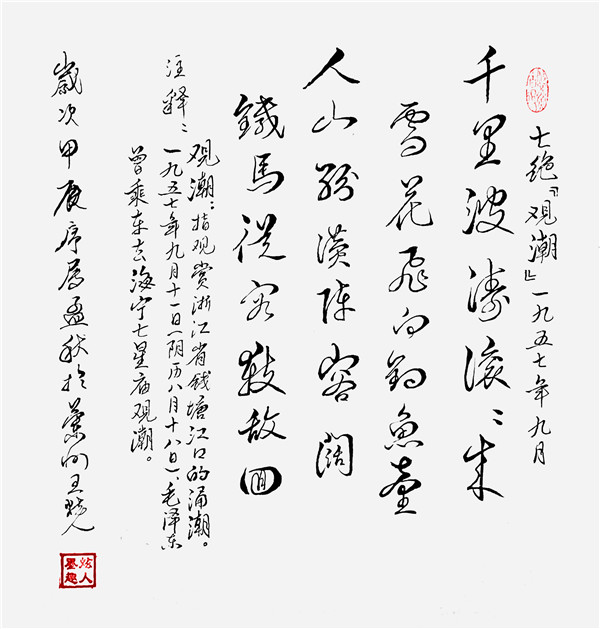 七绝『观潮』一九五七年九月
千里波涛滚〻来
雪花飞向钓鱼臺
人山纷讚阵容阔
鐵馬從容殺敌回
注释：
观潮：指观赏浙江省钱塘江口的涌潮。
一九五七年九月十一日(阴历八月十八日)、毛泽东
曾乘车去海宁七星庙观潮。
歲次甲辰序属孟秋於蘭州王